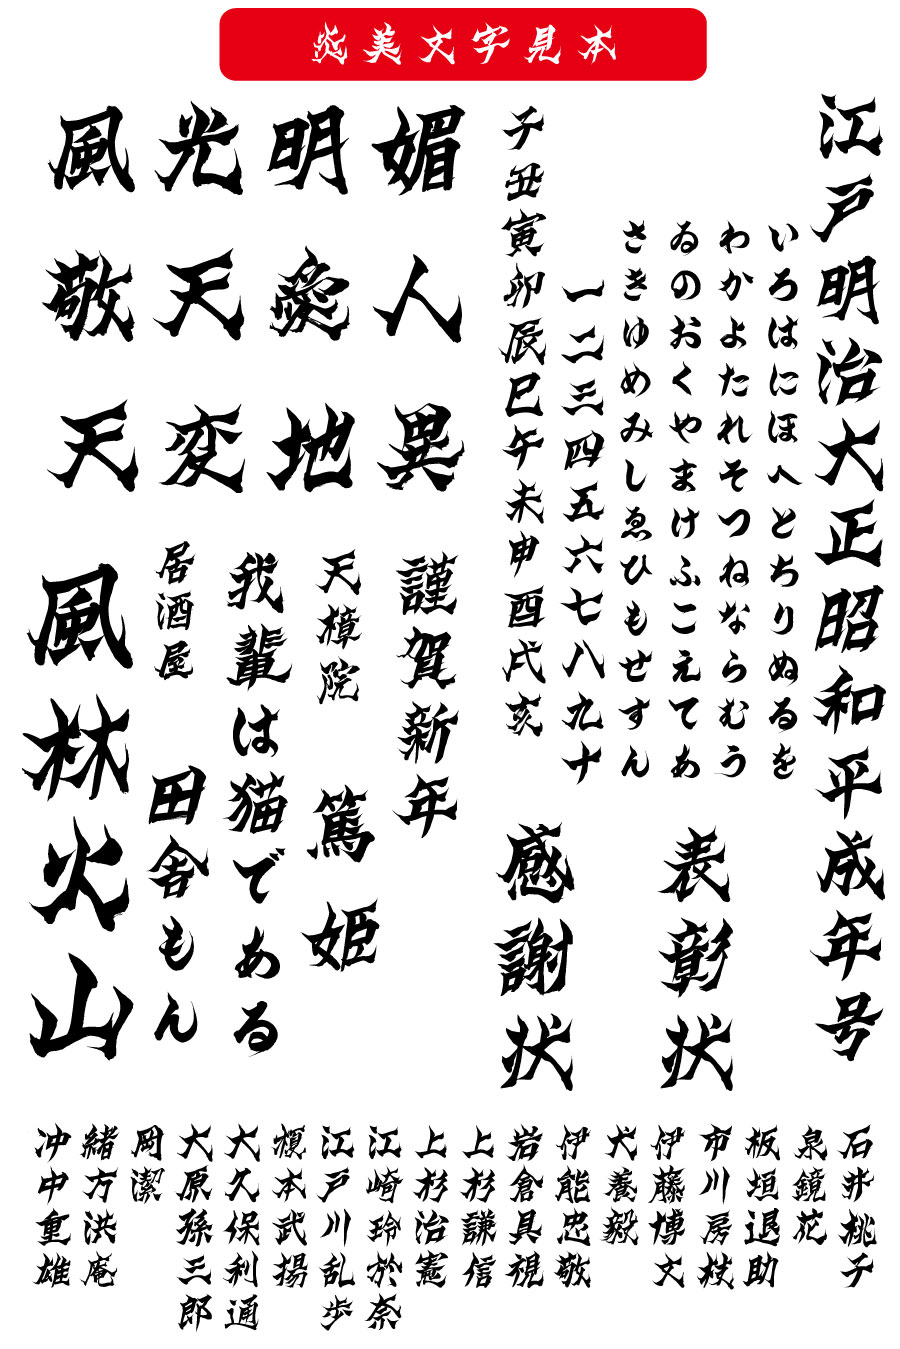 炎美文字見本
江戸明治大正昭和平成年号
いろはにほへとちりぬるを
わかよたれそつねならむう
ゐのおくやまけふこえてあ
さきゆめみしゑひもせすん
一二三四五六七八九十
子丑寅卯辰巳午未申酉戌亥
表彰状
感謝状
風光明媚
敬天愛人
天変地異
謹賀新年
天樟院
篤姫
我輩は猫である
居酒屋
田舎もん
風林火山
石井桃子
泉鏡花
板垣退助
市川房枝
伊藤博文
犬養毅
伊能忠敬
岩倉具視
上杉謙信
上杉治憲
江崎玲於奈
江戸川乱歩
榎本武揚
大久保利通
大原孫三郎
岡潔
緒方洪庵
冲中重雄